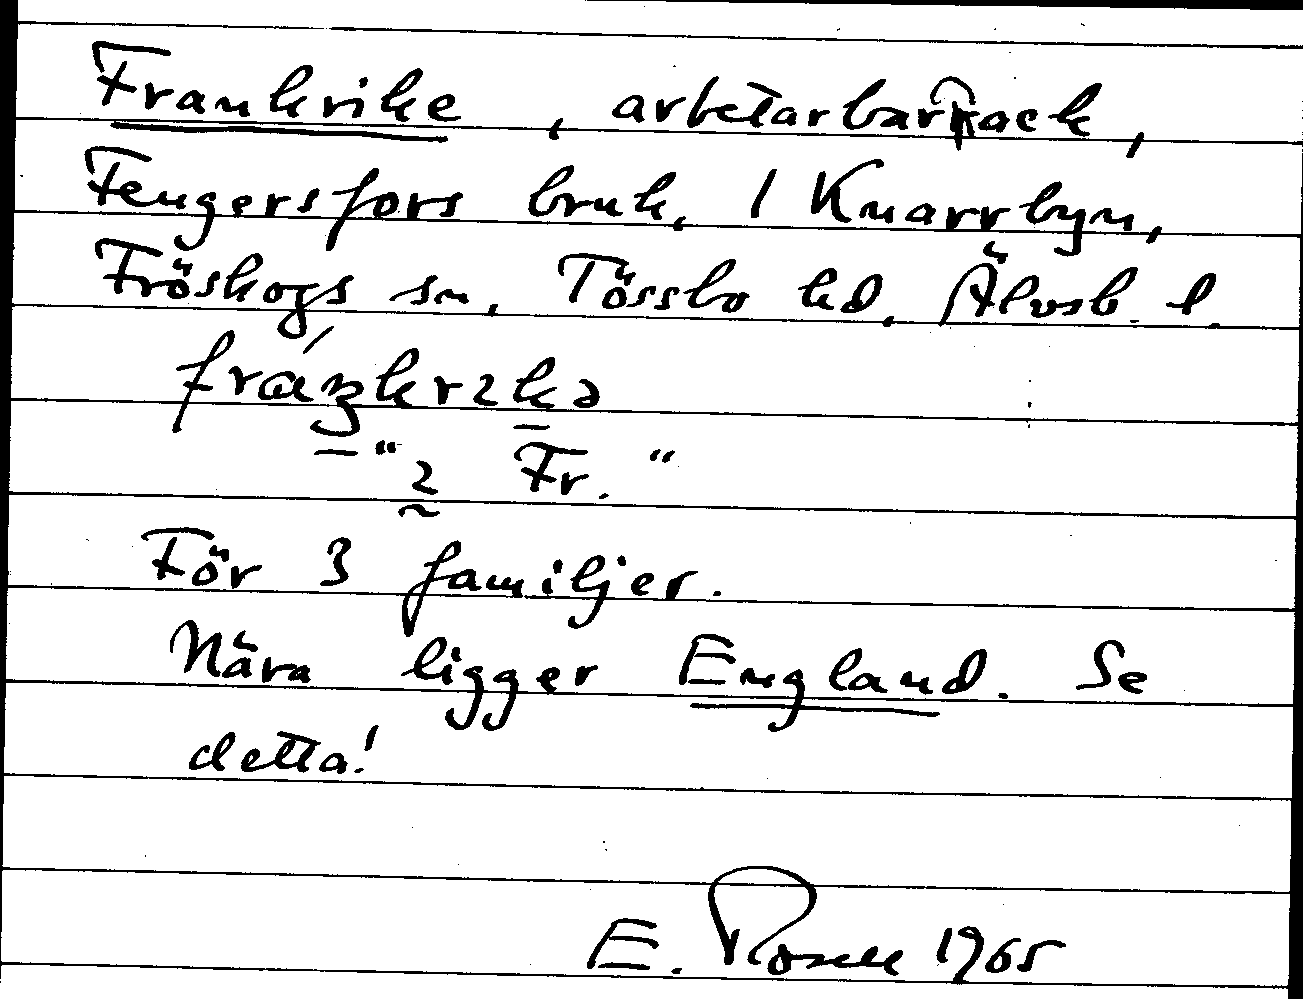 Frankrike, arbetarbarrack,
Fengersfors bruk, 1 Knarrbyn,
Fröskogs sn, Tössbo hd, Älvsb. l.
fráŋkrɩkə
"ɩ Fr."
För 3 familjer.
Nära ligger England. Se
detta!
E. Rosell 1965